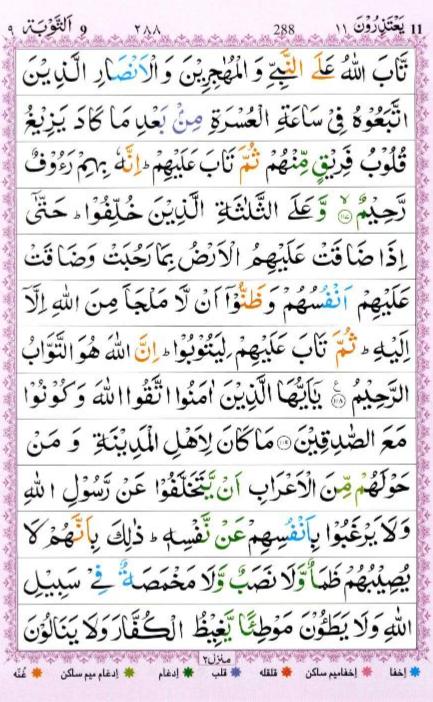 11 يَعْتَذِرُوْنَ ١١ 288 ٢٨٨ 9 اَلتَّوْبَة ٩
تَّابَ اللّٰهُ عَلَى النَّبِيِّ وَ الْمُهٰجِرِيْنَ وَ الْاَنْصَارِ الَّذِيْنَ
اتَّبَعُوْهُ فِيْ سَاعَةِ الْعُسْرَةِ مِنْۢ بَعْدِ مَا كَادَ يَزِيْغُ
قُلُوْبُ فَرِيْقٍ مِّنْهُمْ ثُمَّ تَابَ عَلَيْهِمْ ؕ اِنَّهٗ بِهِمْ رَءُوْفٌ
رَّحِيْمٌ ۙ‏﴿۱۱۷﴾ وَّ عَلَى الثَّلٰثَةِ الَّذِيْنَ خُلِّفُوْا ؕ حَتّٰۤى
اِذَا ضَاقَتْ عَلَيْهِمُ الْاَرْضُ بِمَا رَحُبَتْ وَ ضَاقَتْ
عَلَيْهِمْ اَنْفُسُهُمْ وَ ظَنُّوْۤا اَنْ لَّا مَلْجَاَ مِنَ اللّٰهِ اِلَّاۤ
اِلَيْهِ ؕ ثُمَّ تَابَ عَلَيْهِمْ لِيَتُوْبُوْا ؕ اِنَّ اللّٰهَ هُوَ التَّوَّابُ
الرَّحِيْمُ ﴿۱۱۸﴾ يٰۤاَيُّهَا الَّذِيْنَ اٰمَنُوا اتَّقُوا اللّٰهَ وَ كُوْنُوْا
مَعَ الصّٰدِقِيْنَ ﴿۱۱۹﴾ مَا كَانَ لِاَهْلِ الْمَدِيْنَةِ وَ مَنْ
حَوْلَهُمْ مِّنَ الْاَعْرَابِ اَنْ يَّتَخَلَّفُوْا عَنْ رَّسُوْلِ اللّٰهِ
وَلَا يَرْغَبُوْا بِاَنْفُسِهِمْ عَنْ نَّفْسِهٖ ؕ ذٰلِكَ بِاَنَّهُمْ لَا
يُصِيْبُهُمْ ظَمَاٌ وَّلَا نَصَبٌ وَّلَا مَخْمَصَةٌ فِيْ سَبِيْلِ
اللّٰهِ وَلَا يَطَـُٔوْنَ مَوْطِئًا يَّغِيْظُ الْكُفَّارَ وَلَا يَنَالُوْنَ
منزل ٢
اخفا اخفا میم ساکن قلقله قلب ادغام ادغام میم ساکن غنّه